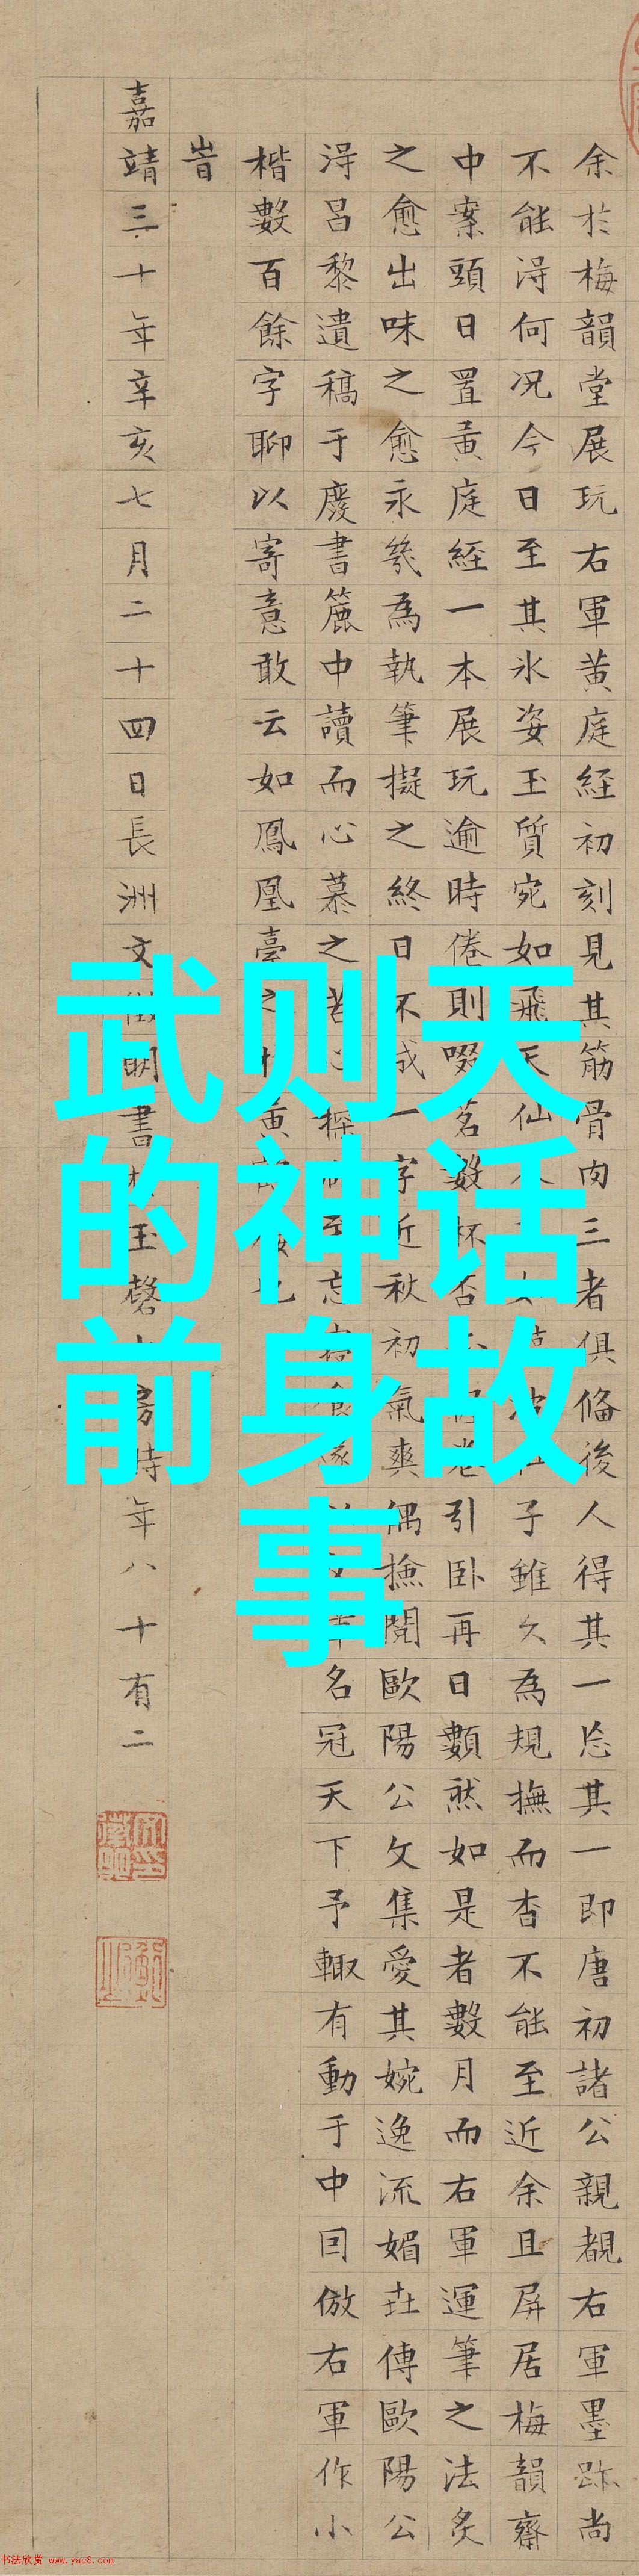 武则天
的神话
前身故
事
余於梅韻堂展玩右軍黄庭経初刻見其筋骨肉三者俱俻後人得其一忘其一即唐初諸公親覩右軍墨跡尚
不能淂何况今日至其氷姿玉質宛如飛天仙子雖久為規撫而杳不能至近余且屏居梅韻齋
中案頭日置黄庭経一本展玩逾時倦則啜茗數杯否引卧再日數然如是者數月而右軍運筆之法炙
之愈出味之愈永幾為執筆擬之終日不成一字近秋初氣爽偶撿閲歐陽公文集愛其婉逸流媚傳歐陽公
淂吕黎遺稿于廢書簏中讀而心慕之苦忘名冠天下予輒有動于中囙倣右軍作小
楷數百餘字聊以寄意敢云如鳳凰臺之黄也
旹
嘉靖三十年辛亥七月二十四日長洲文徵明書玉磬房時年八十有二
书法欣赏 www.yac8.com